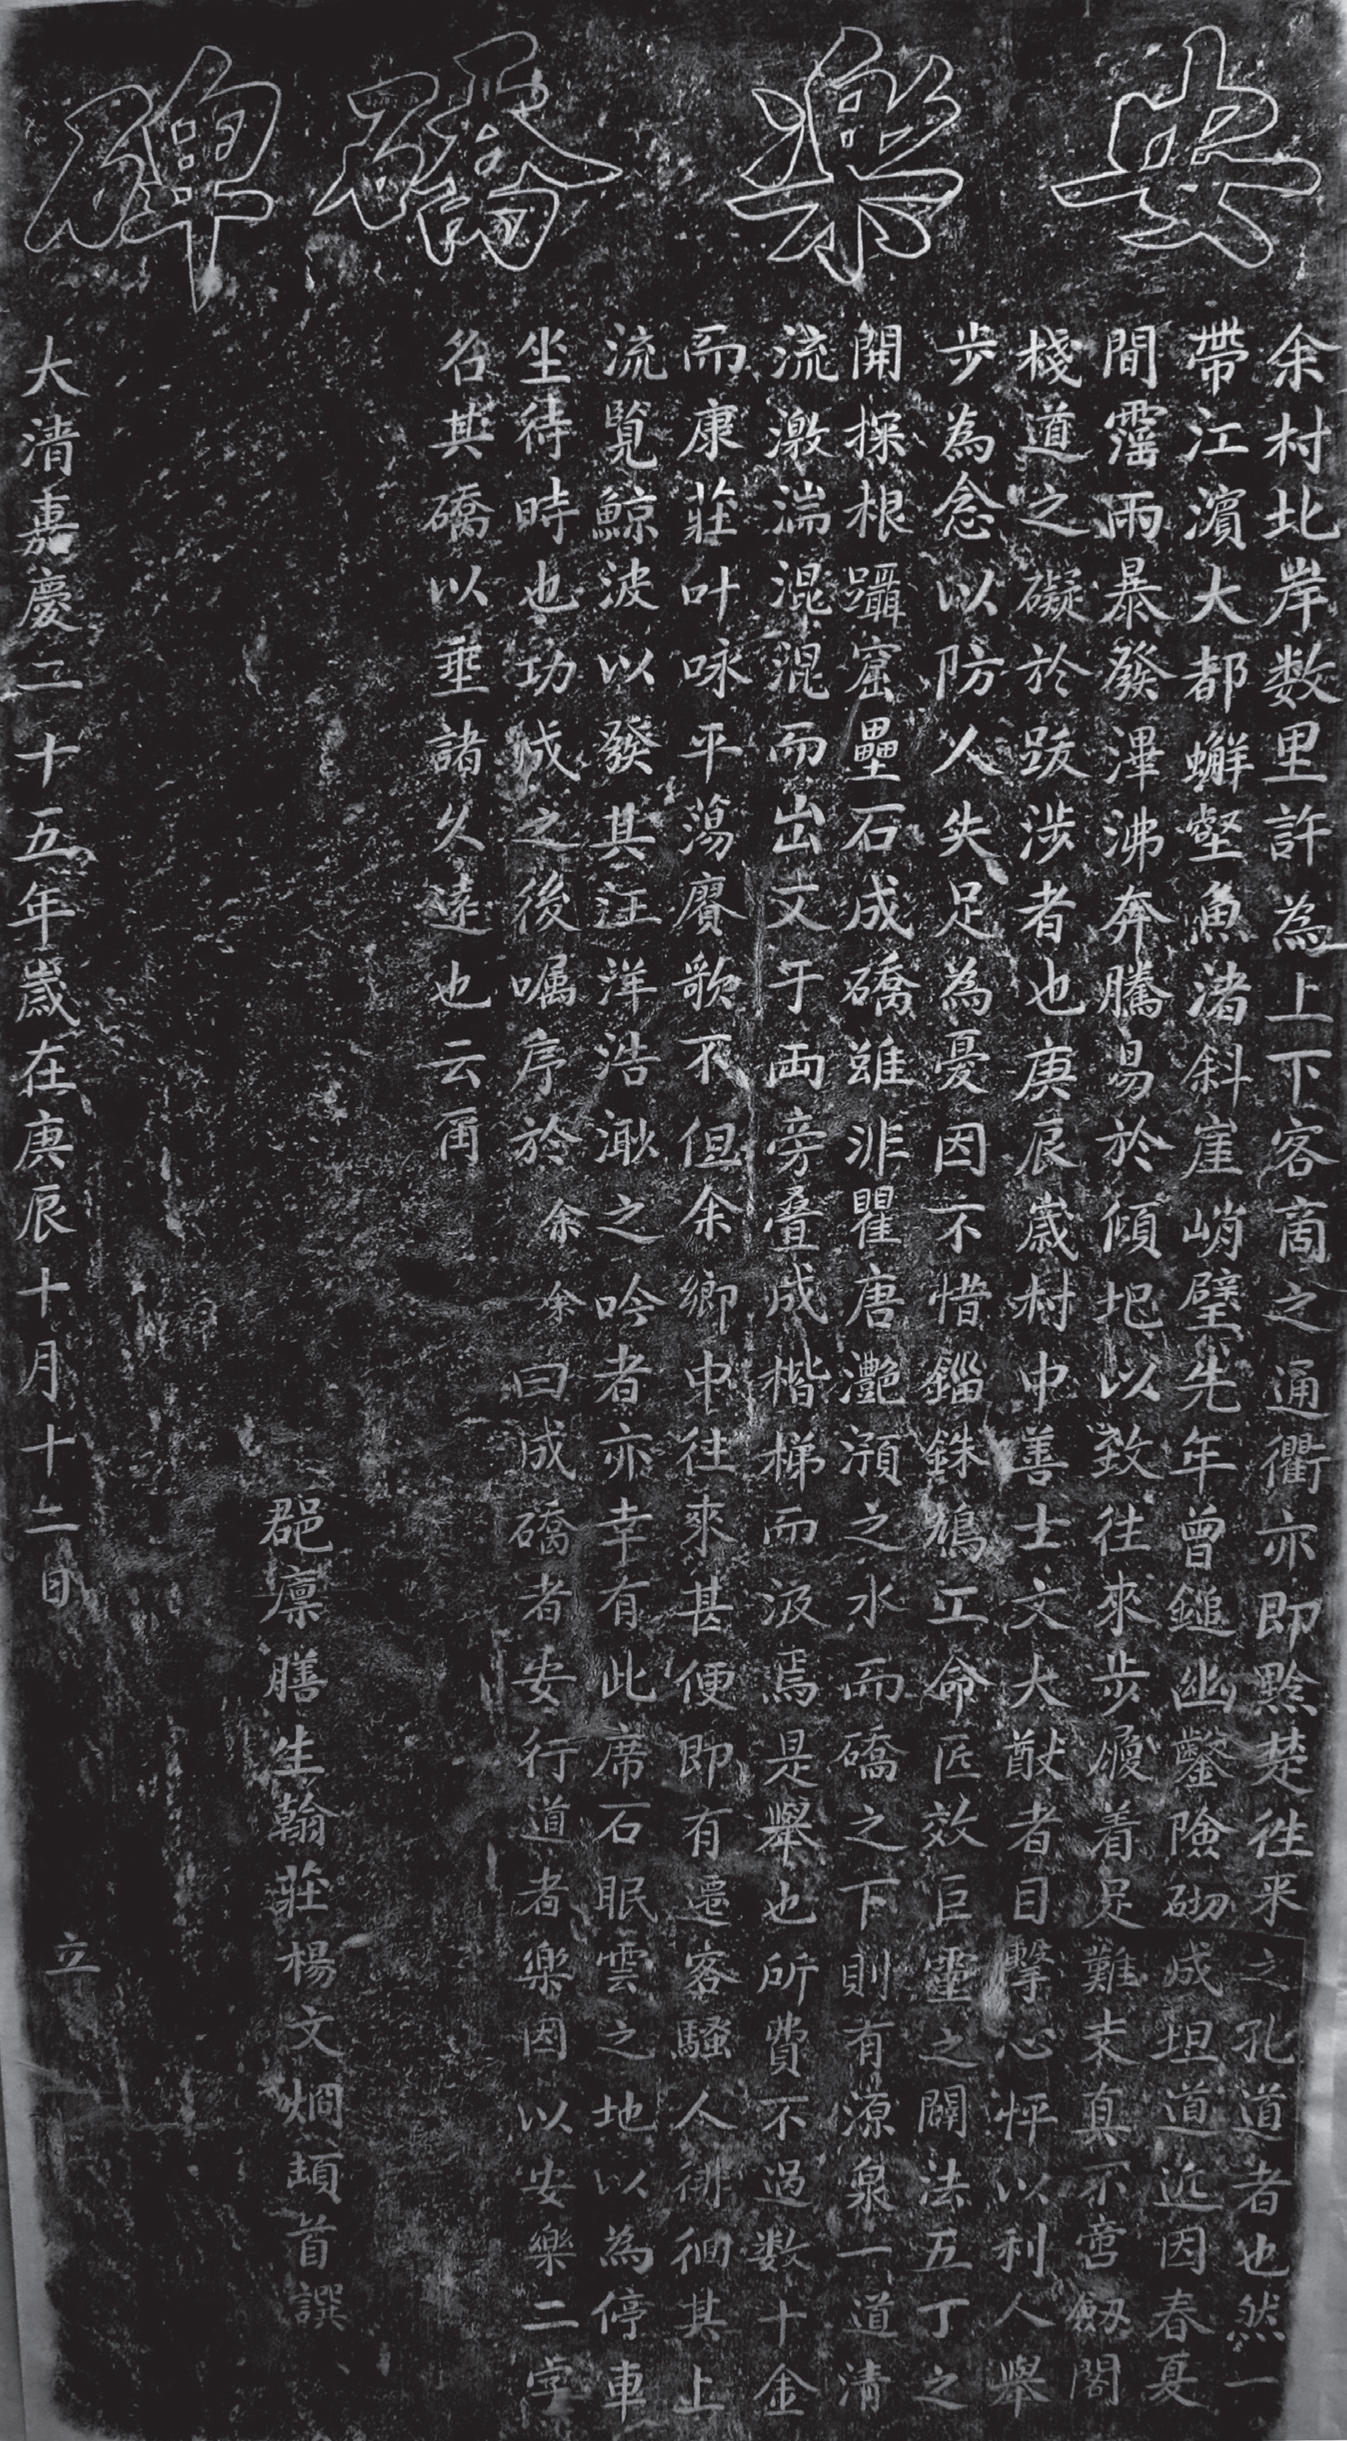 安樂礄碑
余村北岸数里許為上下客啇之通衢亦即黔楚徃来之孔道者也然一
帶江濵大都蠏壑魚渚斜崖峭壁先年曾鎚幽鑿險砌成坦道近因春夏
間霪雨暴發滭沸奔騰易於傾圯以致往來步履着足難未真不啻劔閣
棧道之礙於跋涉者也庚辰歲村中善士文大猷者目擊心怦以利人舉
步為念以防人失足為憂因不惜錙銖鳩工命匠效巨靈之闢法五丁之
開探根躡窟壘石成礄雖非瞿唐灔澦之水而礄之下則有源泉一道清
流激湍混混而出文于両旁叠成楷梯而汲焉是舉也所費不過数十金
而康莊叶咏平蕩賡歌不但余鄉中往來甚便即有遷客騷人徘徊其上
流覧鯨波以發其汪洋浩瀚之吟者亦幸有此席石眠雲之地以為停車
坐待時也功成之後嘱序於余余曰成礄者安行道者樂因以安樂二字
名其礄以垂諸久遠也云甭
郡廪膳生翰莊楊文烱頓首譔
大清嘉慶二十五年歲在庚辰十月十二日 立